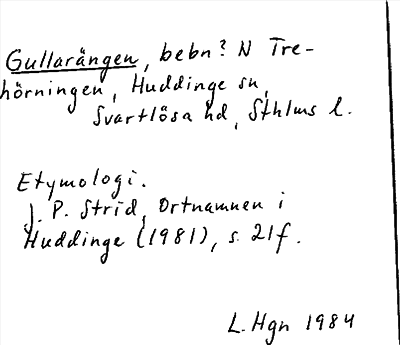 Gullarängen, bebn? N Tre-
hörningen, Huddinge sn,
Svartlösa hd, Sthlms l.
Etymologi.
J. P. Strid, Ortnamnen i
Huddinge (1981), s. 21f.
L. Hgn 1984